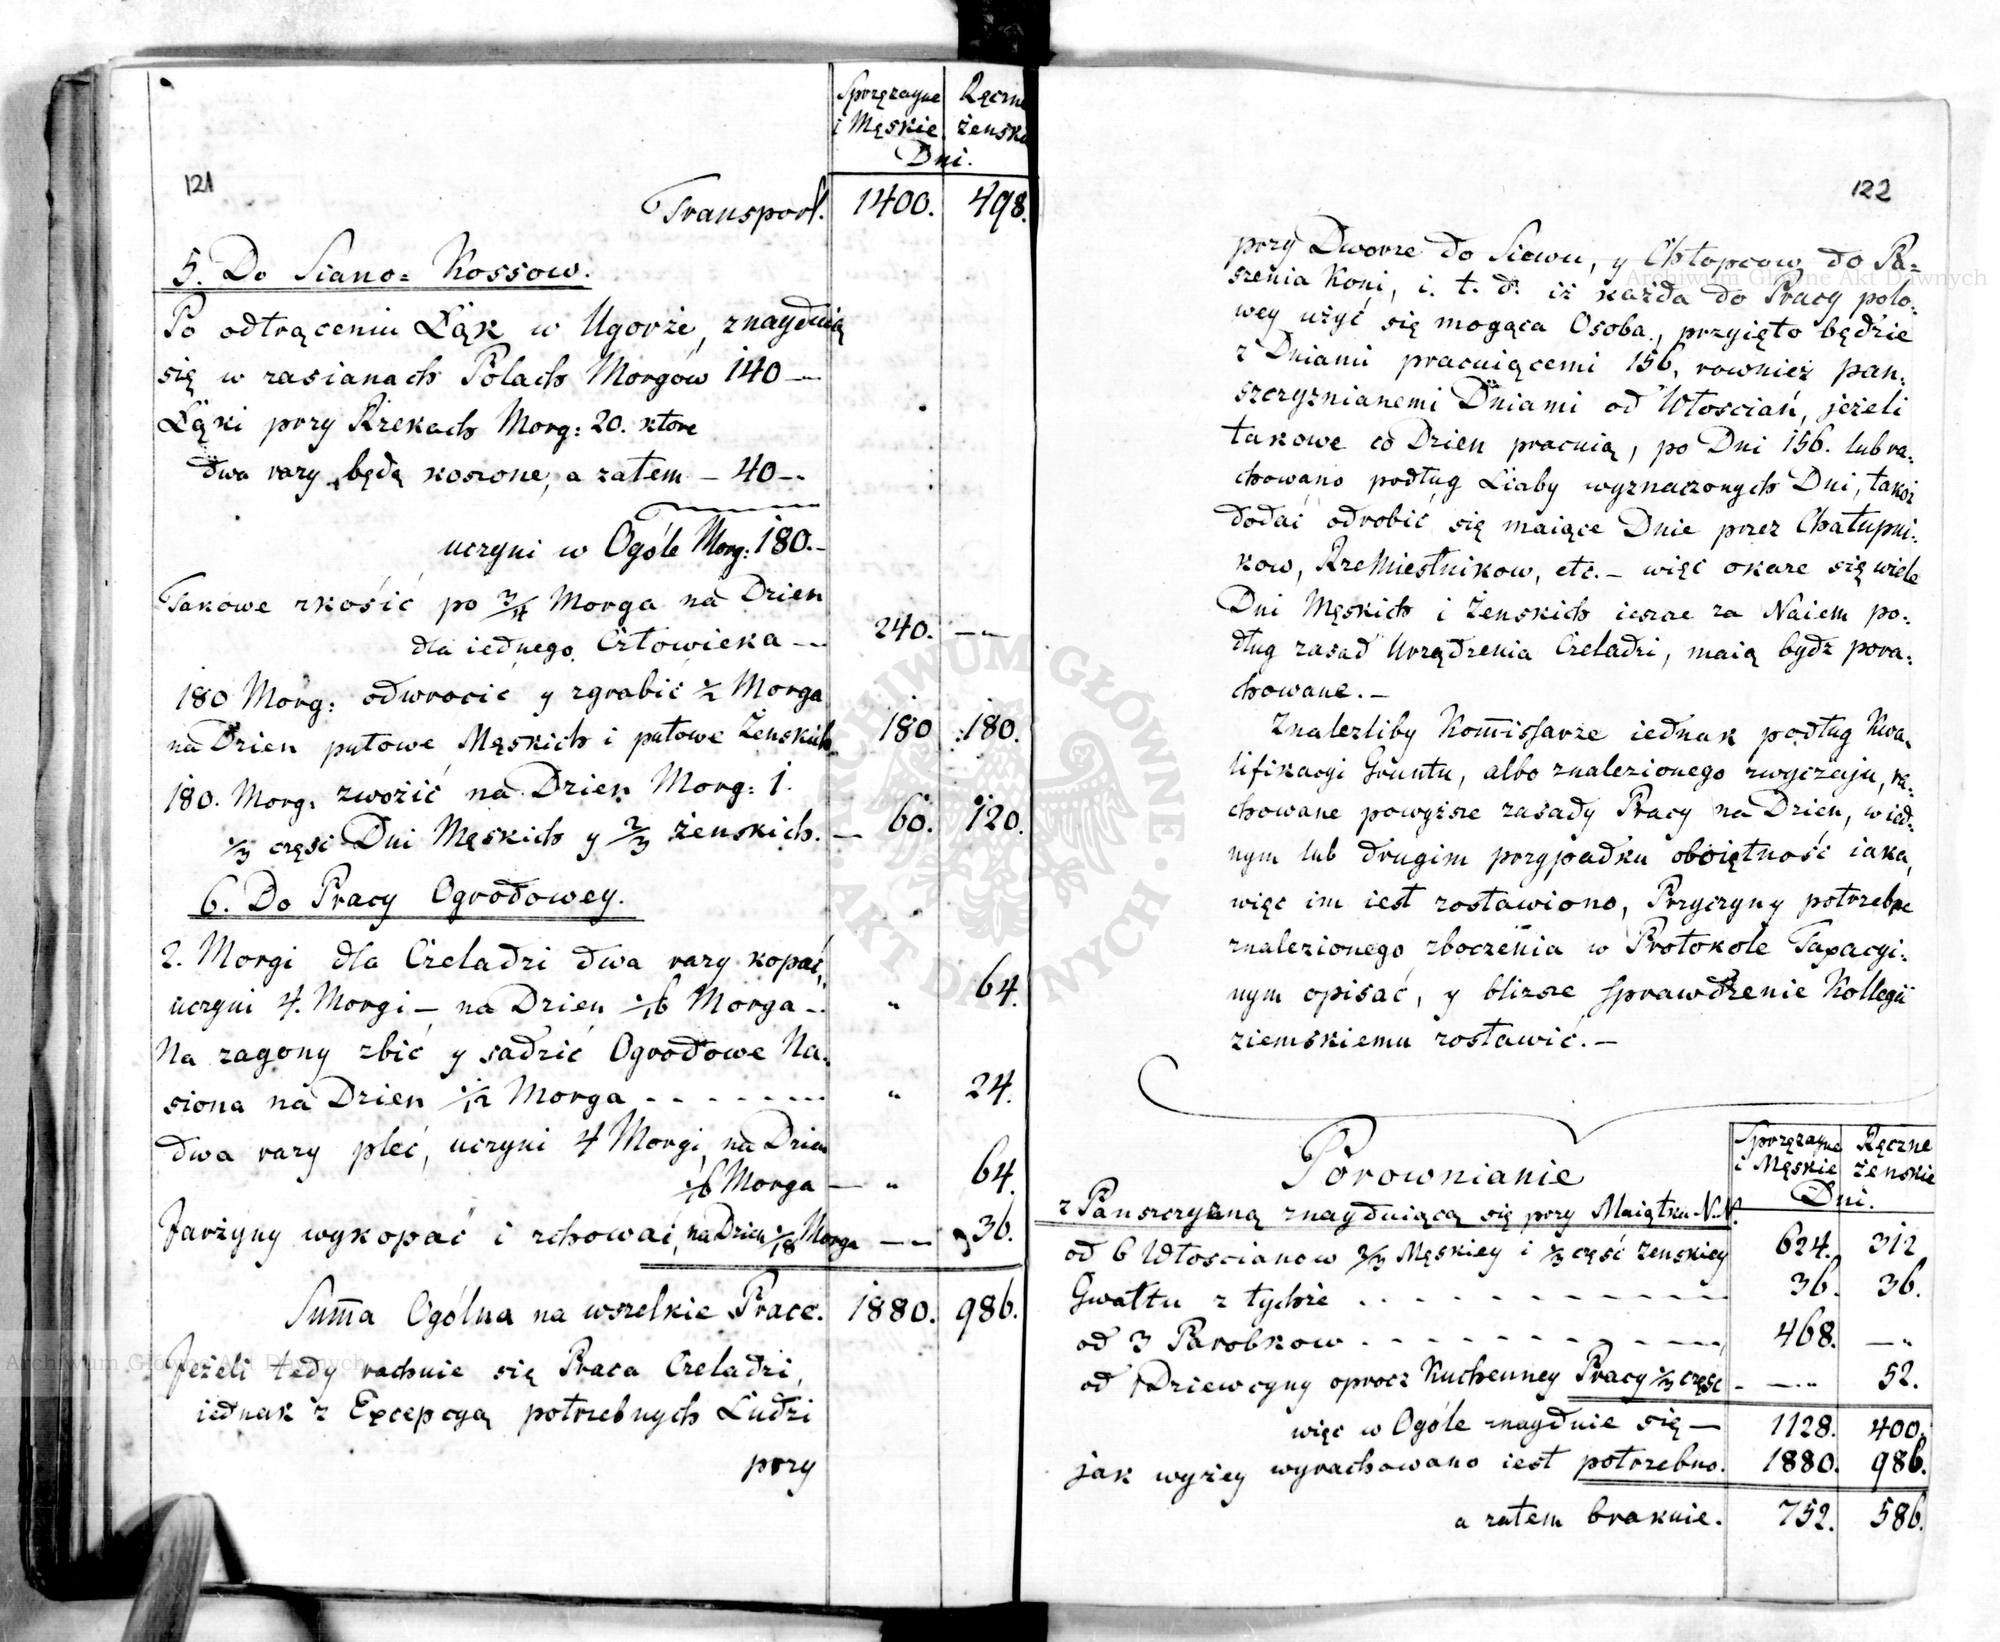 121
Sprzężayne Ręczne
i Męskie żenskie
Dni.
Transport. 1400. 498.
5. Do Siano= Kossow.
Po odtrąceniu Łąk w Ugorże, znayduią
się w zasianach Polach Morgów 140 —
Łąki przy Rzekach Morg: 20. ktore
dwa razy będą koszone, a zatem — 40 —
uczyni w Ogóle Morg: 180. —
Takowe zkośić po 3/4 Morga na Dzien
dla iednego Człowieka — 240. —
180 Morg: odwrocić y zgrabić 1/2 Morga
na Dzien pułowe Męskich i pułowe Żenskich 180 180.
180. Morg: zwożić na Dzien Morg: 1.
1/3 częsc Dni Męskich y 2/3 żenskich. — 60. 120.
6. Do Pracy Ogrodowey.
2. Morgi dla Czeladzi dwa razy kopać,
uczyni 4. Morgi — na Dzien 1/16 Morga — „ 64.
Na zagony zbić y sadzić Ogrodowe Na=
siona na Dzien 1/12 Morga - - - - - - - „ 24.
dwa razy pleć, uczyni 4 Morgi, na Dzien
1/16 Morga — „ 64.
Jarżyny wykopać i zchować, na Dzien 1/18 Morga — — 36.
Sum̄a Ogólna na wszelkie Prace. 1880. 986.
Jeżeli tedy rachuie się Praca Czeladzi,
iednak z Excepcyą potrzebnych Ludzi
przy
122
przy Dworze do Siewu, y Chłopcow do Pa=
szenia Koni, i. t. d. iż każda do Pracy polo=
wey użyć się mogąca Osoba, przyięto będzie
z Dniami pracuiącemi 156, rownież pan=
szczyznianemi Dniami od Włoscian, jeżeli
takowe co Dzien pracuią, po Dni 156. lub ra=
chowano podług Liczby wyznaczonych Dni, takoż
dodać odrobić się maiące Dnie przez Chałupni=
kow, Rzemieslnikow, etc. — więc okaze się wiele
Dni Męskich i Żenskich ieszcze za Naiem po=
dług zasad Urządzenia Czeladzi, maią bydz pora=
chowane. —
Znalezliby Kom̄issarze iednak podług Kwa=
lifikacyi Gruntu, albo znalezionego zwyczaju, ra=
chowane powyższe zasady Pracy na Dzien, w ied=
nym lub drugim przypadku oboiętność iaką,
więc im iest zostawiono, Przyczyny potrzebne
znalezionego zboczenia w Protokole Taxacyi=
nym opisać, y bliższe Sprawdzenie Kollegii
ziemskiemu zostawić. —
Porownianie
Sprzężayne Ręczne
i Męskie żenskie
Dni.
z Panszczyzną znayduiącą się przy Maiątku N.N.
od 6 Włoscianow 2/3 Męskiey i 1/3 część żenskiey 624. 312
Gwałtu z tychże - - - - - - - - - 36. 36.
od 3 Parobkow - - - - - - - - - 468. —
od 1 Dziewczyny oprocz Kuchenney Pracy 1/3 częsc - — 52.
więc w Ogóle znayduie się — 1128. 400.
jak wyżey wyrachowano iest potrzebno. 1880. 986.
a zatem brakuie. 752. 586.
Archiwum Główne Akt Dawnych
Archiwum Główne Akt Dawnych
ARCHIWUM GŁÓWNE AKT DAWNYCH